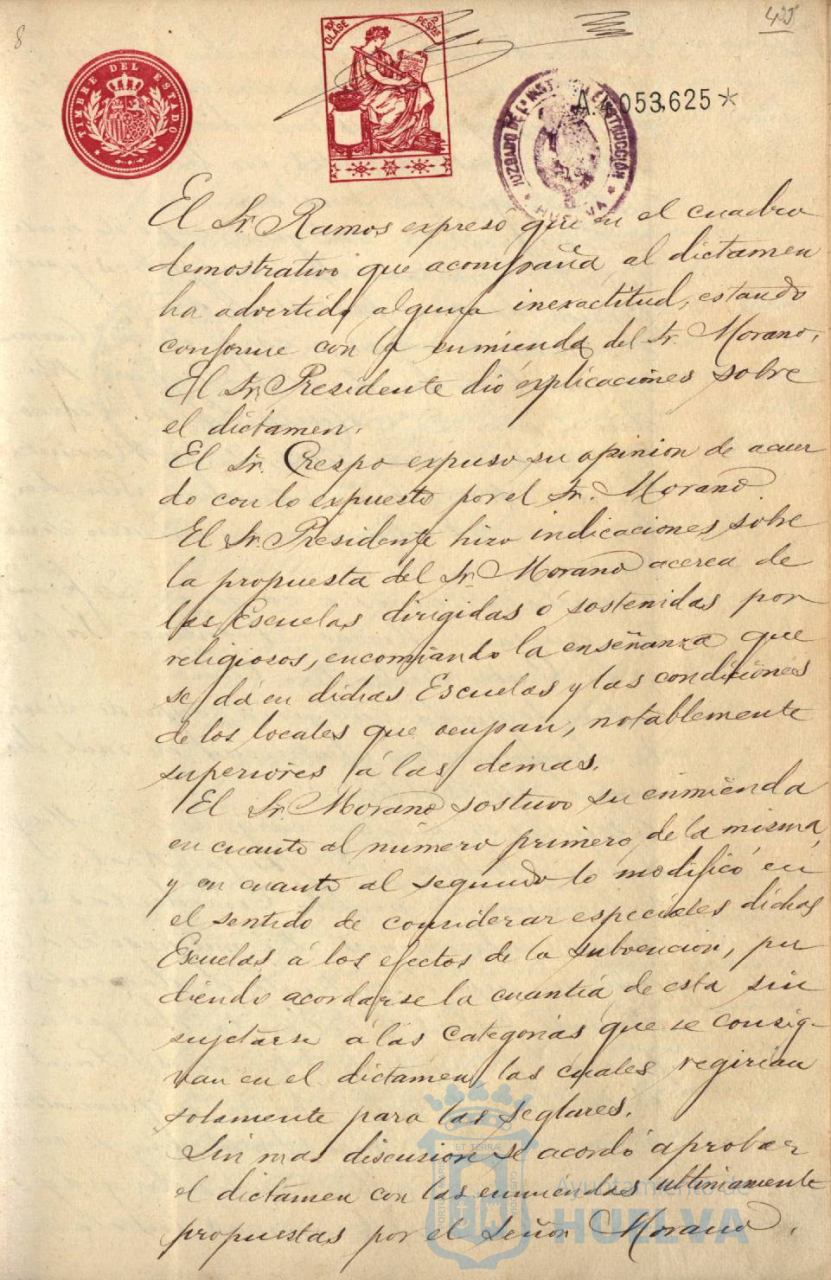 8
425
TIMBRE DEL ESTADO
CLASE
PESETAS
JUZGADO DE 1ª INST. É INSTRUCCIÓN
HUELVA
A. 053,625 *
El Sr. Ramos expresó que en el cuadro
demostrativo que acompaña al dictamen
ha advertido alguna inexactitud, estando
conforme con la enmienda del Sr. Morano.
El Sr. Presidente dió explicaciones sobre
el dictamen.
El Sr. Crespo expuso su opinion de acuer
do con lo expuesto por el Sr. Morano
El Sr. Presidente hizo indicaciones sobre
la propuesta del Sr. Morano acerca de
las Escuelas dirigidas ó sostenidas por
religiosos, encomiando la enseñanza que
se dá en dichas Escuelas y las condiciones
de los locales que ocupan, notablemente
superiores á las demas.
El Sr. Morano sostuvo su enmienda
en cuanto al número primero de la misma,
y en cuanto al segundo lo modificó en
el sentido de considerar especiales dichas
Escuelas á los efectos de la subvencion, pu
diendo acordarse la cuantía de esta sin
sujetarse á las categorias que se consig-
nan en el dictamen, las cuales regirian
solamente para las seglares.
Sin mas discusion se acordó aprobar
el dictamen con las enmiendas ultimamente
propuestas por el Señor Morano.
Ayuntamiento de
HUELVA